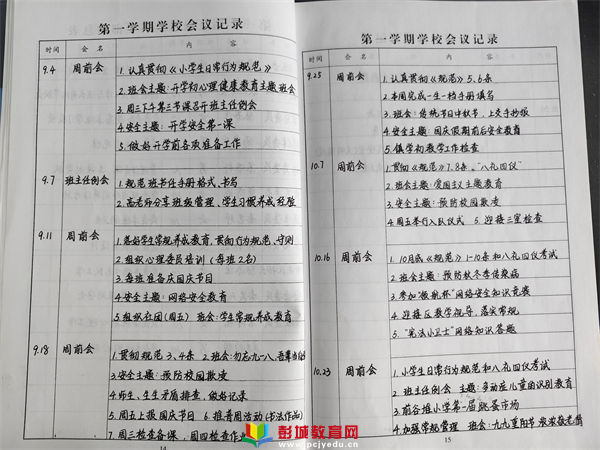 第一学期学校会议记录
时间 会名 内容
9.4 周前会 1.认真贯彻《小学生日常行为规范》
2.班会主题:开学初心理健康教育主题班会
3.周三下午第三节课召开班主任例会
4.安全主题:开学安全第一课
5.做好开学前各项准备工作
9.7 班主任例会 1.规范班书任手册格式、书写
2.高老师分享班级管理、学生习惯养成经验
9.11 周前会 1.抓好学生常规养成教育,贯彻行为规范、守则
2.组织心理委员培训(每班2名)
3.各班准备庆国庆节目
4.安全主题:网络安全教育
5.组织社团(周五) 班会:学生常规养成教育
9.18 周前会 1.贯彻规范3、4条 2.班会:勿忘九一八、吾辈当自
3.安全主题:预防校园欺凌
4.师生、生生矛盾排查,做好记录
5.周五上报国庆节目 6.推普周活动(书法作品)
7.周三检查备课,周四检查作业
14
第一学期学校会议记录
时间 会名 内容
9.25 周前会 1.认真贯彻《规范》5.6条
2.本周完成一生一档手册填写
3.班会:传统节日中秋节,上交手抄报
4.安全主题:国庆假期前后安全教育
5.镇学初教学工作检查
10.7 周前会 1.贯彻《规范》7.8条."八礼四仪"
2.班会主题:爱国主义主题教育
3.安全主题:预防校园欺凌
4.周五举行入队仪式 5.迎接三室检查
10.16 周前会 1.10月底《规范》1-10条和八礼四仪考试
2.班会主题:预防秋冬季传染病
3.参加"微航杯"网络安全知识竞赛
4.迎接区教学视导,落实常规
5."宪法小卫士"网络知识答题
10.23 周前会 1.小学生日常行为规范和八礼四仪考试
2.班主任例会 主题:多动症儿童的识别教育
3.前谷堆小学第一届跳蚤市场
4.加强常规管理 班会:九九重阳节 浓浓敬老情
15
彭城教育网
www.pcjyedu.cn